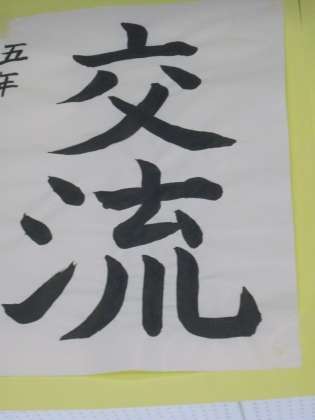 交流
五年